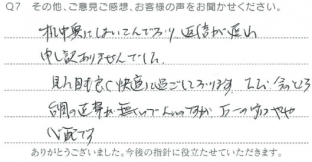 Q7 その他、ご意見ご感想、お客様の声をお聞かせください。
返信が遅れ
申し訳ありませんでした。
見た目も良く快適に過ごしております。ただ、今のところ
台風の直撃が無いので いいですが 万一の時はやや
心配です
ありがとうございました。今後の指針に役立たせていただきます。